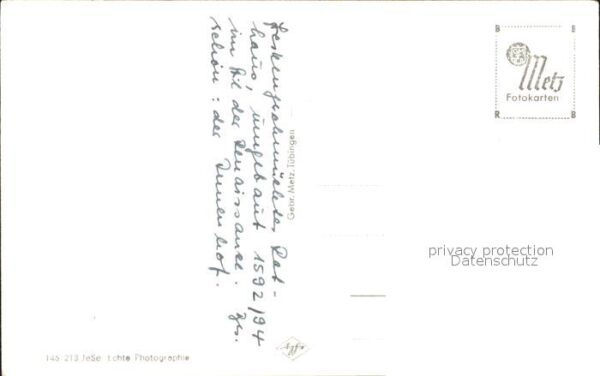 Freskengeschmücktes Rat-
haus, umgebaut 1592/94
im Stil der Renaissance. Bes.
schön: der Innenhof.
Gebr. Metz, Tübingen
B B
Metz
Fotokarten
R B
privacy protection
Datenschutz
Agfa
146 213 JeSe Echte Photographie